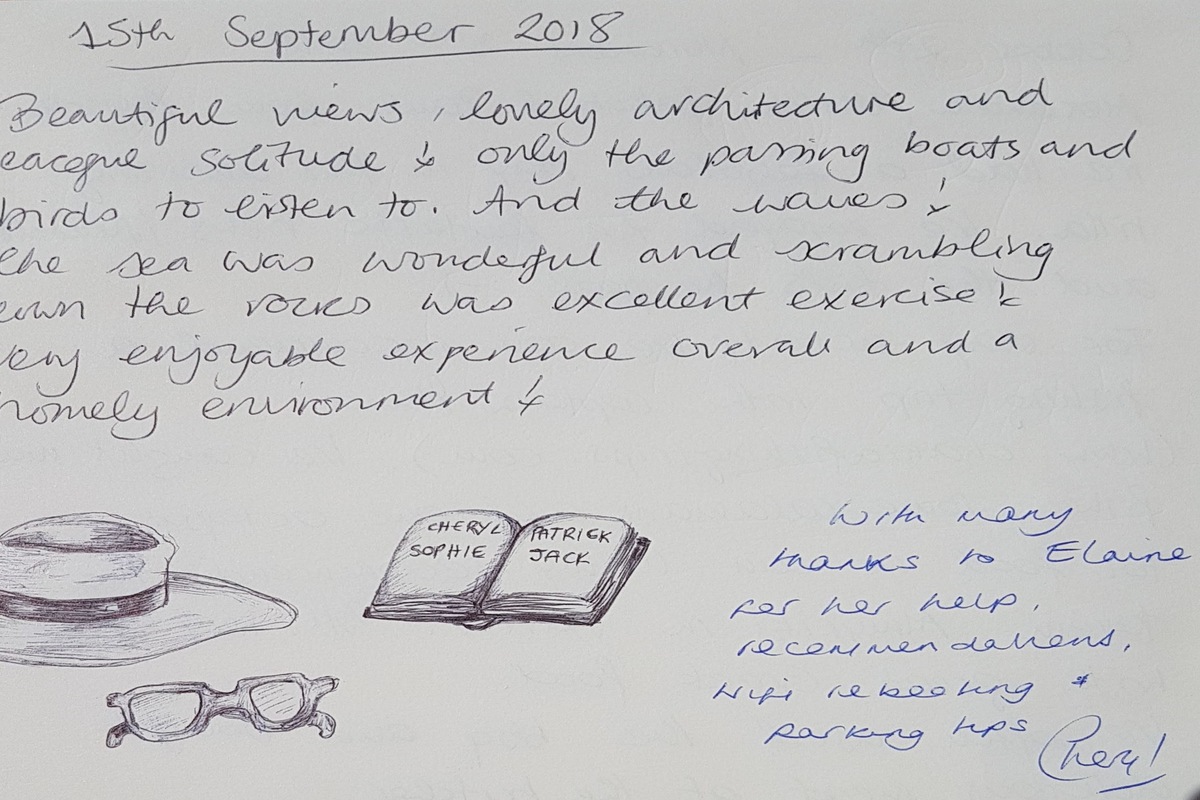 15th September 2018
Beautiful views, lovely architecture and
eaceful solitude! only the passing boats and
birds to listen to. And the waves!
the sea was wonderful and scrambling
own the rocks was excellent exercise!
very enjoyable experience overall and a
homely environment!
CHERYL
SOPHIE
PATRICK
JACK
With many
thanks to Elaine
for her help,
recommendations,
wifi rebooting &
parking tips
Cheryl